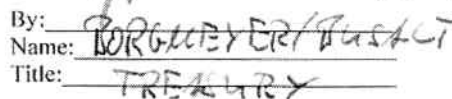 By:
Name: BORGMEYER/
Title: TREASURY